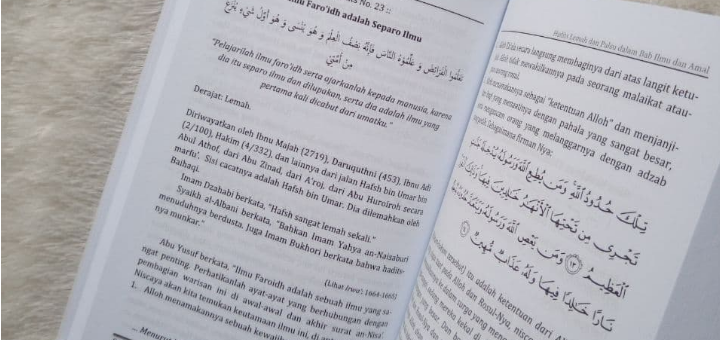 ts No. 23 ::
mu Faro'idh adalah Separo Ilmu
تَعَلَّمُوا الْفَرَائِضَ وَ عَلِّمُوْهُ النَّاسَ فَإِنَّهُ نِصْفُ الْعِلْمِ وَ هُوَ يُنْسَى وَ هُوَ أَوَّلُ شَيْءٍ يُنْزَعُ
مِنْ أُمَّتِيْ
"Pelajarilah ilmu faro'idh serta ajarkanlah kepada manusia, karena
dia itu separo ilmu dan dilupakan, serta dia adalah ilmu yang
pertama kali dicabut dari umatku."
Derajat: Lemah.
Diriwayatkan oleh Ibnu Majah (2719), Daruquthni (453), Ibnu Adi
(2/100), Hakim (4/332), dan lainnya dari jalan Hafsh bin Umar bin
Abul Athof, dari Abu Zinad, dari A'roj, dari Abu Huroiroh secara
marfu'. Sisi cacatnya adalah Hafsh bin Umar. Dia dilemahkan oleh
Baihaqi.
Imam Dzahabi berkata, "Hafsh sangat lemah sekali."
Syaikh al-Albani berkata, "Bahkan Imam Yahya an-Naisaburi
menuduhnya berdusta. Juga Imam Bukhori berkata bahwa hadits-
nya munkar."
(Lihat Irwa', 1664-1665)
Abu Yusuf berkata, "Ilmu Faroidh adalah sebuah ilmu yang sa-
ngat penting. Perhatikanlah ayat-ayat yang berhubungan dengan
pembagian warisan ini di awal-awal dan akhir surat an-Nisa'.
Niscaya akan kita temukan keutamaan ilmu ini, di
1. Alloh menamakannya sebuah kewaji
... Menurut
Hadits Lemah dan Palsu dalam Bab Ilmu dan Amal
Dia secara langsung membaginya dari atas langit ketu-
tidak mewakilkannya pada seorang malaikat atau-
sebagai "ketentuan Alloh" dan menjanji-
yang mentaatinya dengan pahala yang sangat besar,
orang yang melanggarnya dengan adzab
Sebagaimana firman Nya:
تِلْكَ حُدُودُ اللَّهِ وَمَن يُطِعِ اللَّهَ وَرَسُولَهُ يُدْخِلْهُ
تَجْرِى مِن تَحْتِهَا الْأَنْهَارُ خَالِدِينَ فِيهَا وَذَٰلِكَ
الْعَظِيمُ ١٣ وَمَن يَعْصِ اللَّهَ وَرَسُولَهُ وَيَتَعَدَّ حُدُودَهُ
نَارًا خَالِدًا فِيهَا وَلَهُ عَذَابٌ مُّهِينٌ ١٤
itu adalah ketentuan dari
pada Alloh dan Rosul-Nya, nisc
ke dalam surga yang men
mereka kekal di